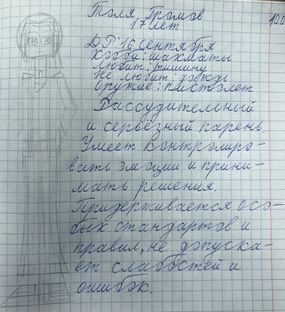 Толя Громов
17 лет
10.0
ДР: 16 сентября
Хобби: шахматы
Любит: тишину
Не любит: дождь
Оружие: пистолет
Рассудительный
и серьёзный парень.
Умеет контролиро-
вать эмоции и прини-
мать решения.
Придерживается осо-
бых стандартов и
правил, не допуска-
ет слабостей и
ошибок.